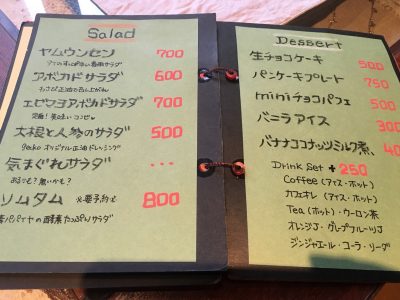 Salad
ヤムウンセン 700
アボカドサラダ 600
わさび正油の
エビマヨアボカドサラダ 700
大根と人参のサラダ 500
gecko オリジナル正油ドレッシング
気まぐれサラダ ・・・
あるかも？無いかも？
ソムタム ※要予約 800
パパイヤの酵素たっぷりサラダ
Dessert
生チョコケーキ 500
パンケーキプレート 750
miniチョコパフェ 500
バニラアイス
バナナココナッツミルク煮
Drink Set +250
Coffee (アイス・ホット)
カフェオレ (アイス・ホット)
Tea (ホット)・ウーロン茶
オレンジJ・グレープフルーツJ
ジンジャエール・コーラ・ソーダ